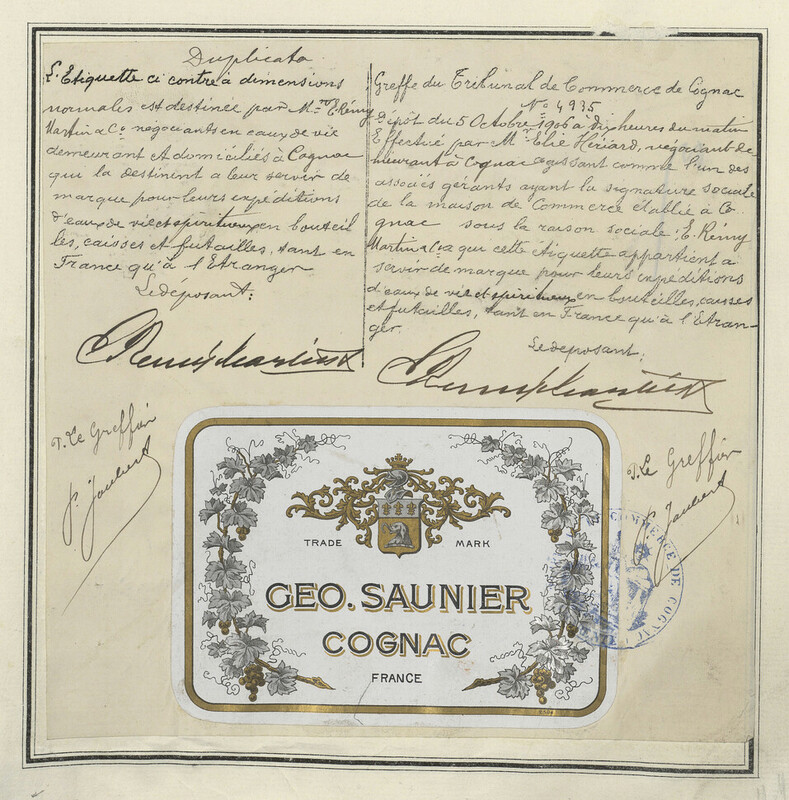 Duplicata
L'Etiquette ci contre à dimensions
normales est destinée par M.rs E. Rémy
Martin & Co négociants en eaux de vie
demeurant et domiciliés à Cognac
qui la destinent à leur servir de
marque pour leurs expéditions
d'eaux de vie et spiritueux en bouteil
les, caisses et futailles, tant en
France qu'à l'Etranger
Le déposant:
E. Remy Martin & Co
Greffe du Tribunal de Commerce de Cognac
No 4935
Dépôt du 5 Octobre 1906 à dix heures du matin
Effectué par Mr Elie Hériard, négociant de-
meurant à Cognac agissant comme l'un des
associés gérants ayant la signature sociale
de la maison de Commerce établie à Co
gnac sous la raison sociale: E. Rémy
Martin & Co a qui cette étiquette appartient a
servir de marque pour leurs expéditions
d'eaux de vie et spiritueux en bouteilles, caisses
et futailles, tant en France qu'à l'Etran-
ger.
Le déposant,
E. Remy Martin & Co
P. Le Greffier
P. Joubert
P. Le Greffier
P. Joubert
TRADE MARK
GEO. SAUNIER
COGNAC
FRANCE
COMMERCE DE COGNAC